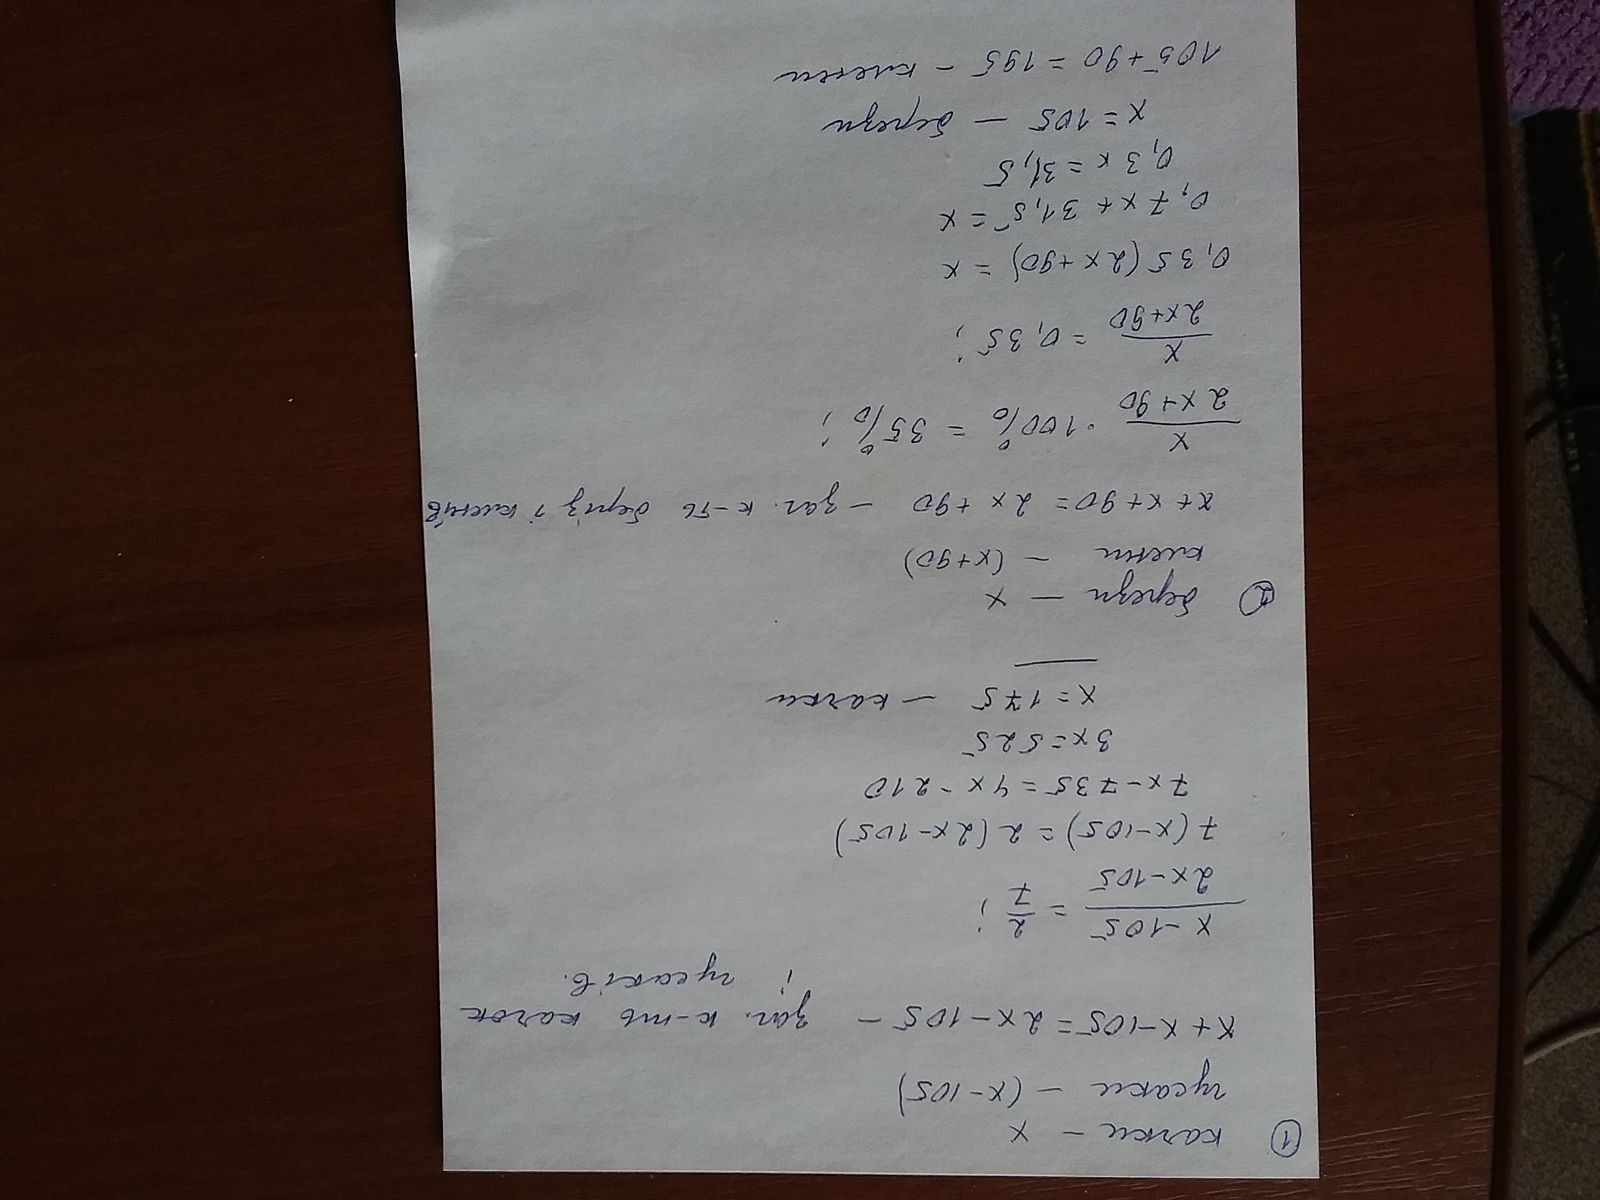 ① качки – x
гусаки – (x-105)
x+x-105=2x-105 – заг. к-ть качок
і гусаків.
x-105/2x-105 = 2/7 ;
7(x-105)=2(2x-105)
7x-735=4x-210
3x=525
x=175 – качки
② берези – x
клени – (x+90)
x+x+90=2x+90 – заг. к-ть беріз і кленів
x/2x+90 · 100% = 35% ;
x/2x+90 = 0,35 ;
0,35(2x+90)=x
0,7x+31,5=x
0,3x=31,5
x=105 – берези
105+90=195 – клени